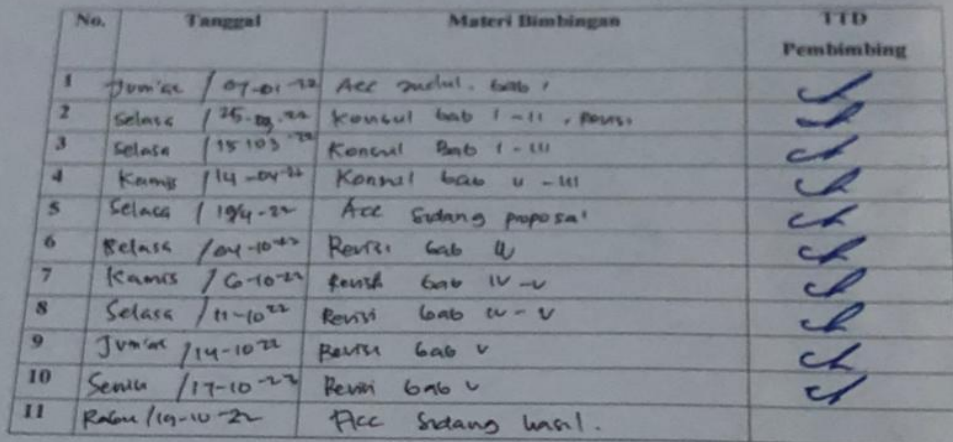 No. Tanggal Materi Bimbingan TTD Pembimbing
1 Jum'at / 07-01-22 Acc judul, bab 1
2 Selasa / 25-22 Konsul bab I - II, Revisi
3 Selasa / 15/03-22 Konsul Bab I - III
4 Kamis / 14-04-22 Konsul bab II - III
5 Selasa / 19/4-22 Acc Sidang proposal
6 Selasa / 04-10-22 Revisi bab IV
7 Kamis / 6-10-22 Revisi bab IV - V
8 Selasa / 11-10-22 Revisi bab IV - V
9 Jum'at / 14-10-22 Revisi bab V
10 Senin / 17-10-22 Revisi bab V
11 Rabu / 19-10-22 Acc Sidang hasil.